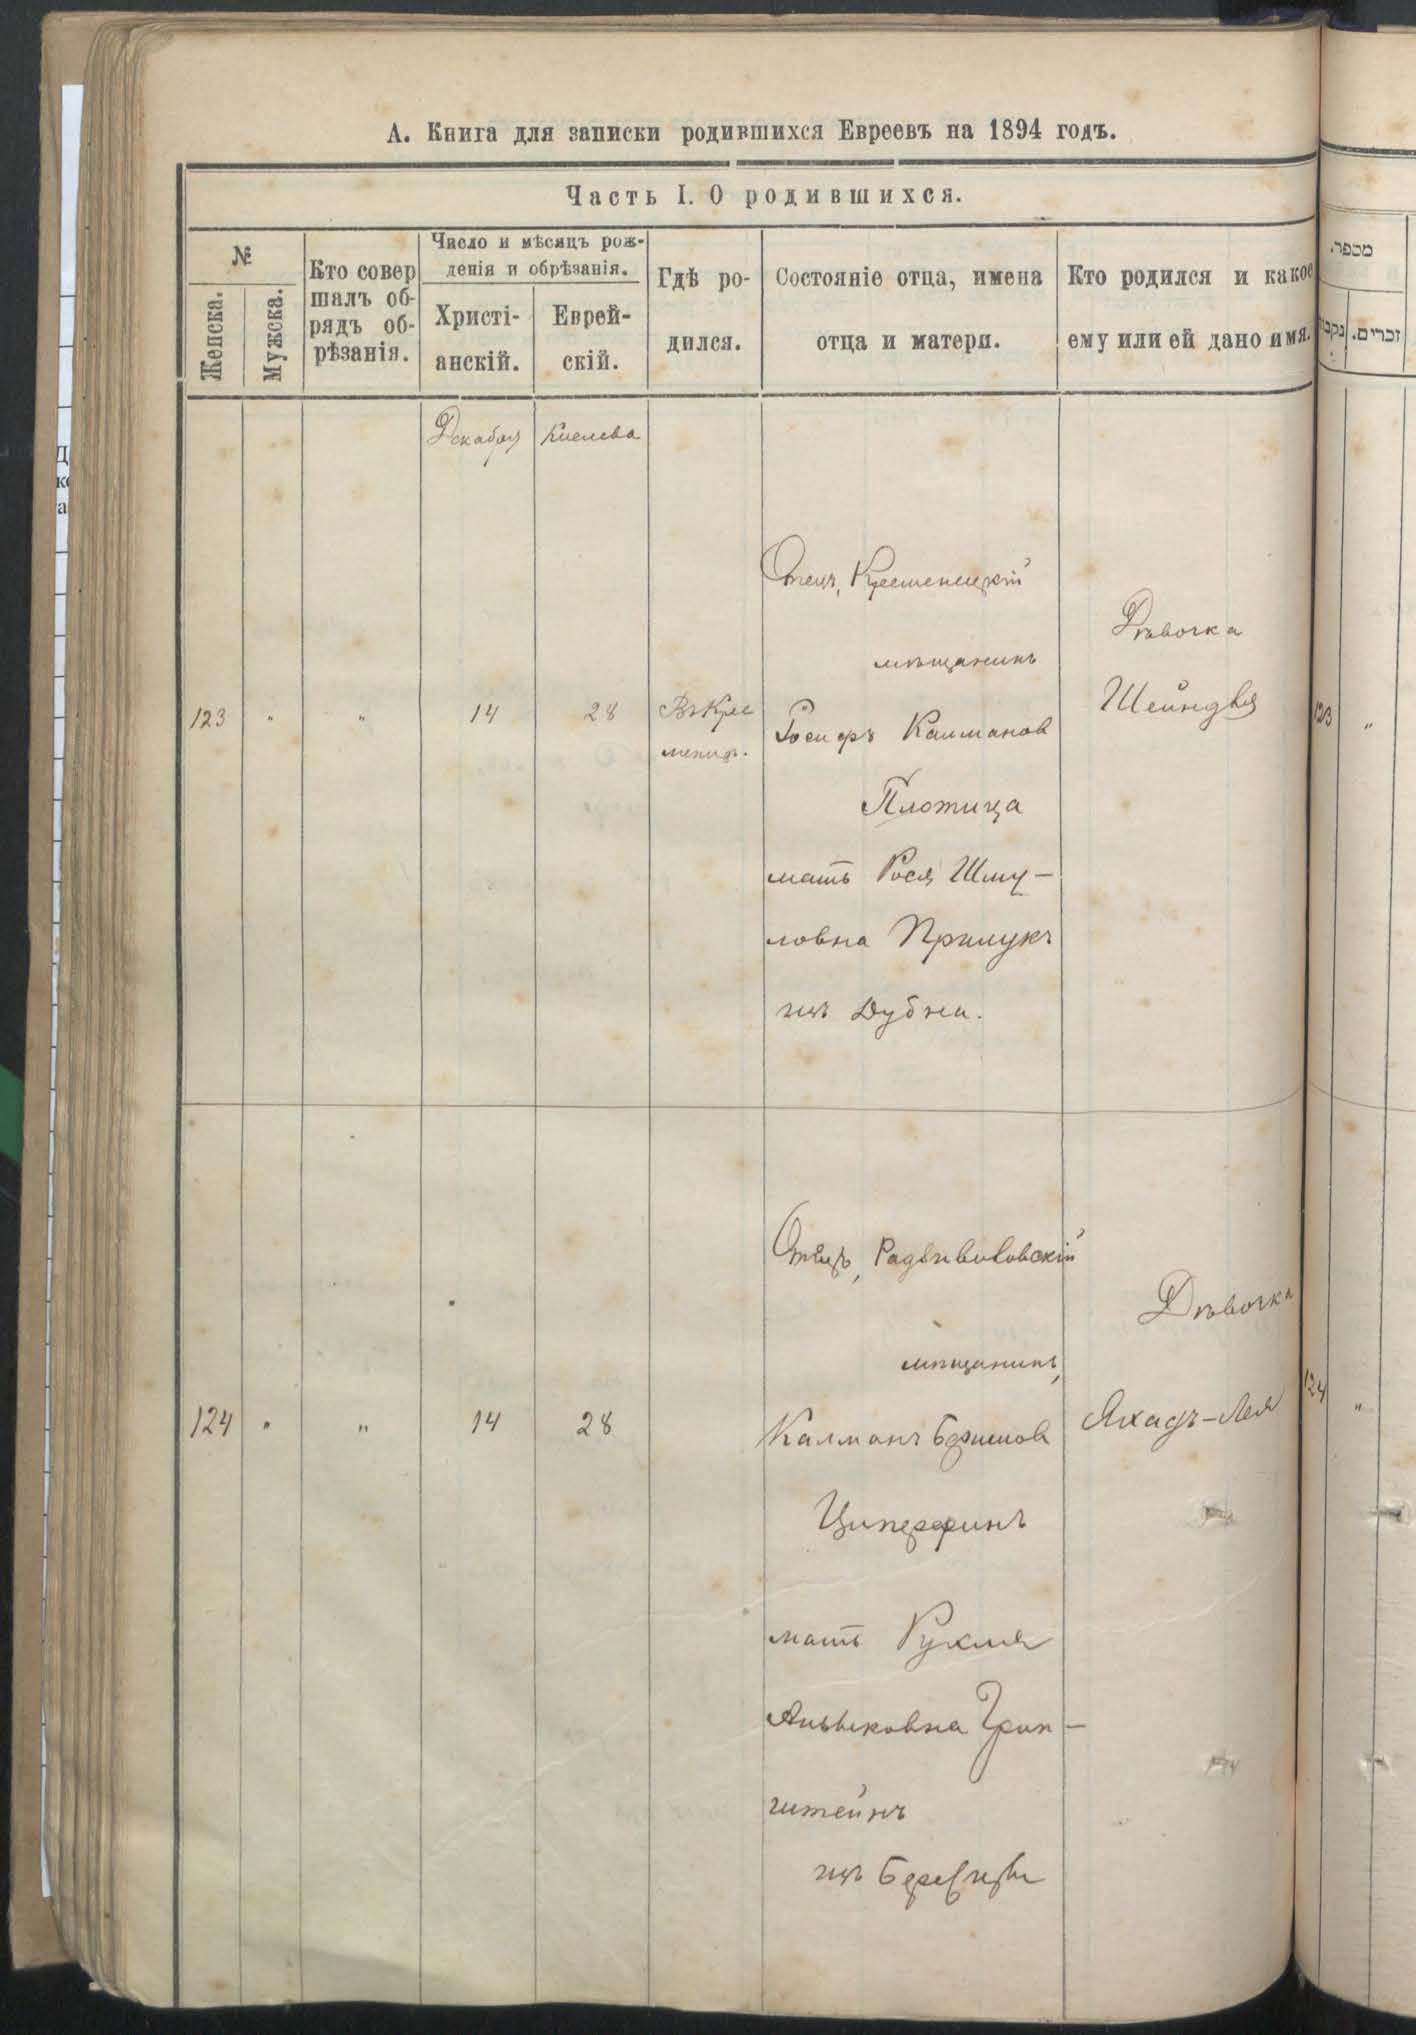 А. Книга для записки родившихся Евреевъ на 1894 годъ.
Часть I. О родившихся.
№
Женска.
Мужска.
Кто совер
шалъ об-
рядъ об-
рѣзанія.
Число и мѣсяцъ рож-
денія и обрѣзанія.
Христі-
анскій.
Еврей-
скій.
Гдѣ ро-
дился.
Состояніе отца, имена
отца и матери.
Кто родился и какое
ему или ей дано имя.
מספר.
זכרים.
Декабря
Кислева
123 " " 14 28
Въ Кре
менцѣ.
Отецъ, Кременецкій
мѣщанинъ
Іосифъ Калманов
Плотица
мать Рося Шму-
ловна Прилукъ
изъ Дубна.
Дѣвочка
Шейндля
123 "
124 " " 14 28
Отецъ, Радзивиловскій
мѣщанинъ,
Калманъ
Циперфинъ
мать Рухля
Айзыковна Грин-
штейнъ
изъ
Дѣвочка
-Лея
124 "